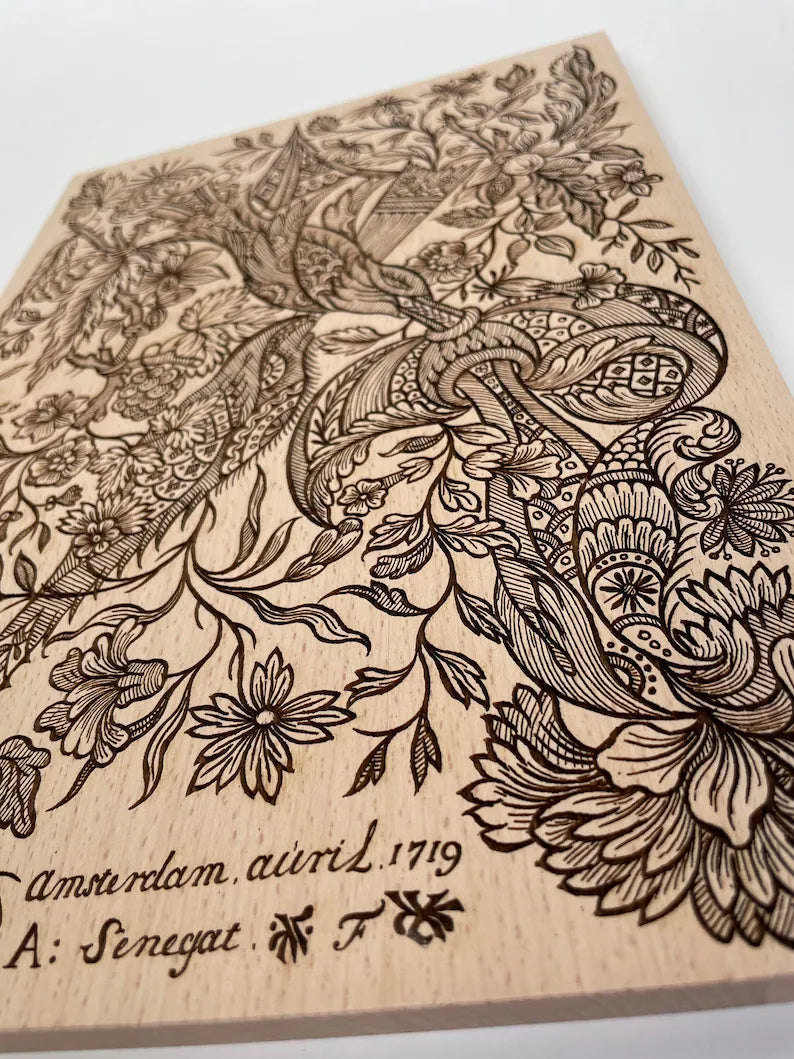 Amsterdam, aúril. 1719
A: Senegat. F